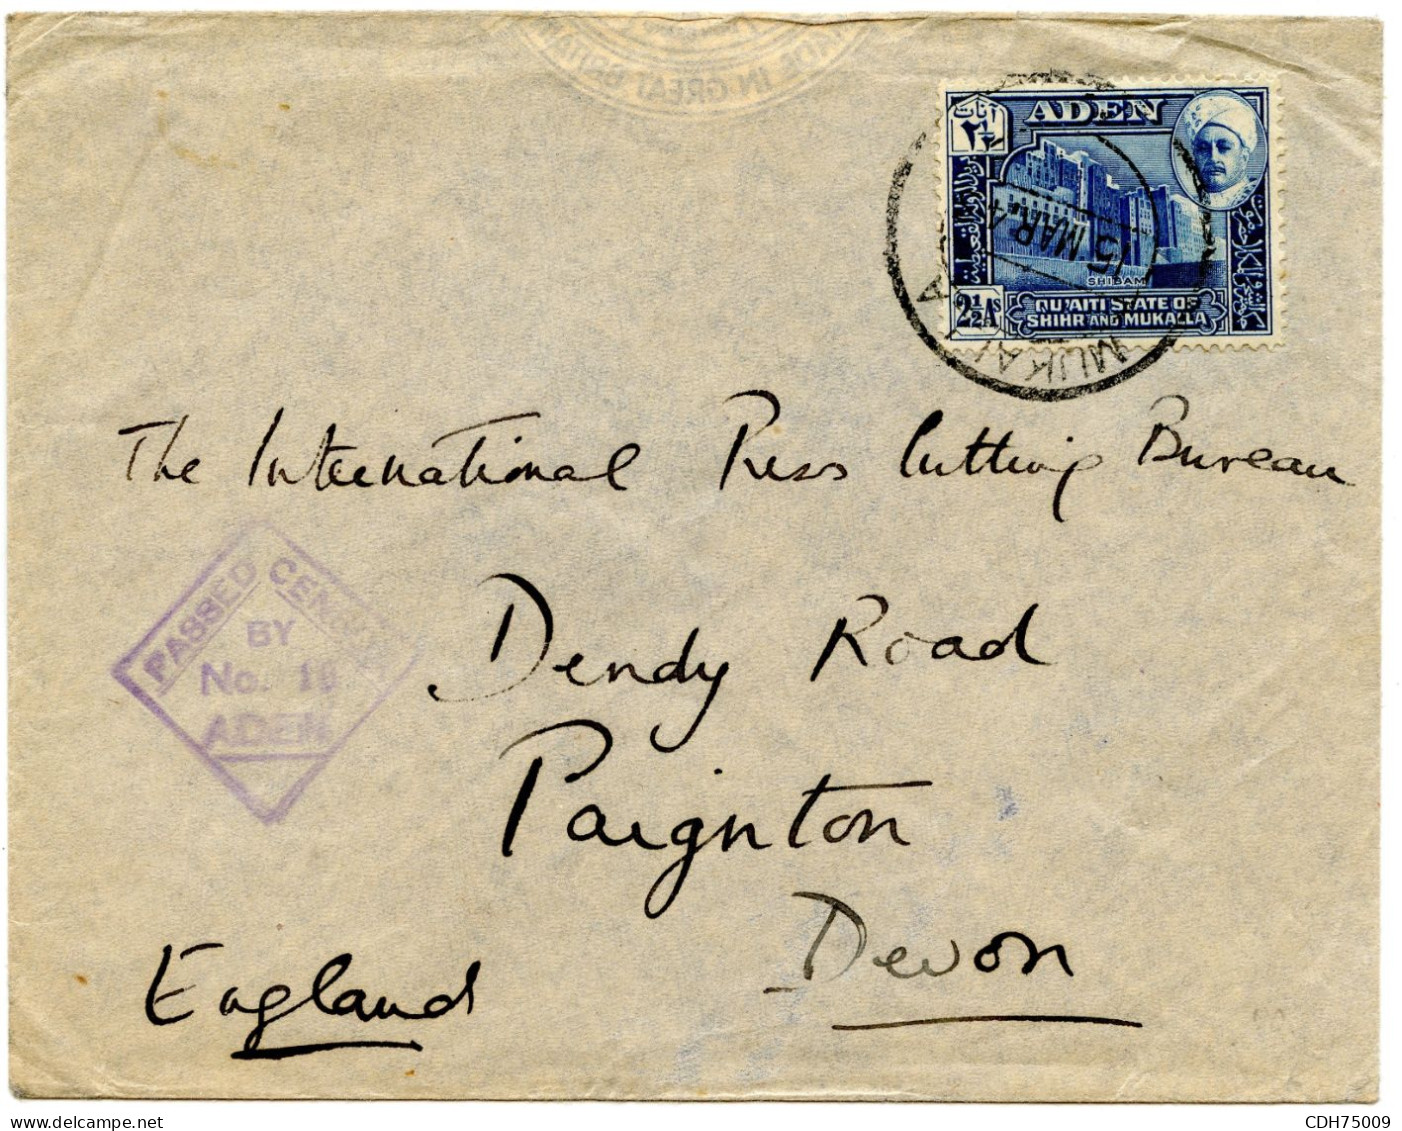 MADE IN GREAT BRITAIN
ADEN
آنات
٢½
SHIBAM
2½ As
QU'AITI STATE OF
SHIHR AND MUKALLA
15 MAR. 4
MUKALLA
The International Press Cutting Bureau
Dendy Road
Paignton
Devon
England
PASSED CENSOR
BY
No.
ADEN
delcampe.net
CDH75009